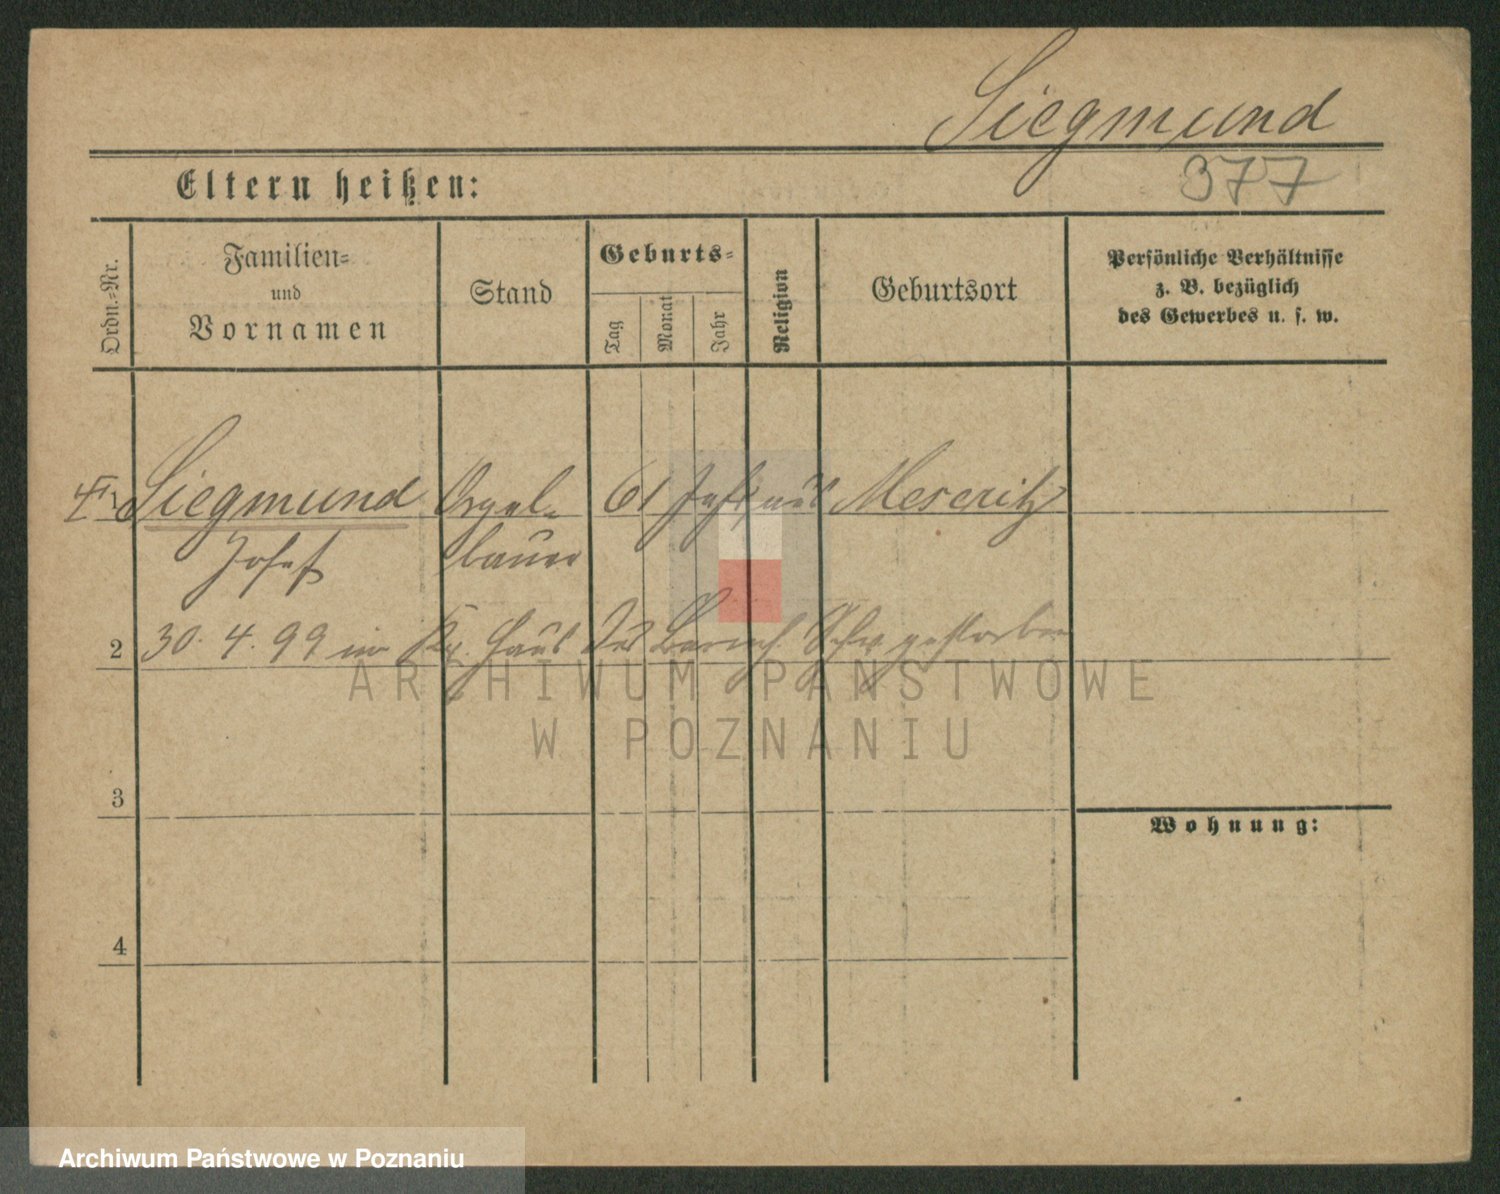 Siegmund
377
Eltern heißen:
Ordn.=Nr.
Familien=
und
Vornamen
Stand
Geburts=
Tag
Monat
Jahr
Religion
Geburtsort
Persönliche Verhältnisse
z. B. bezüglich
des Gewerbes u. s. w.
Siegmund Orgel= 61 Jahr aus Meseritz
Josef bauer
2 30. 4. 99 im Kr. Haus der Barmh. Schw. gestorben
ARCHIWUM PAŃSTWOWE
W POZNANIU
3
Wohnung:
4
Archiwum Państwowe w Poznaniu